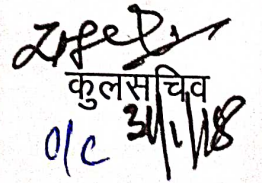 कुलसचिव
O/C 31/1/18